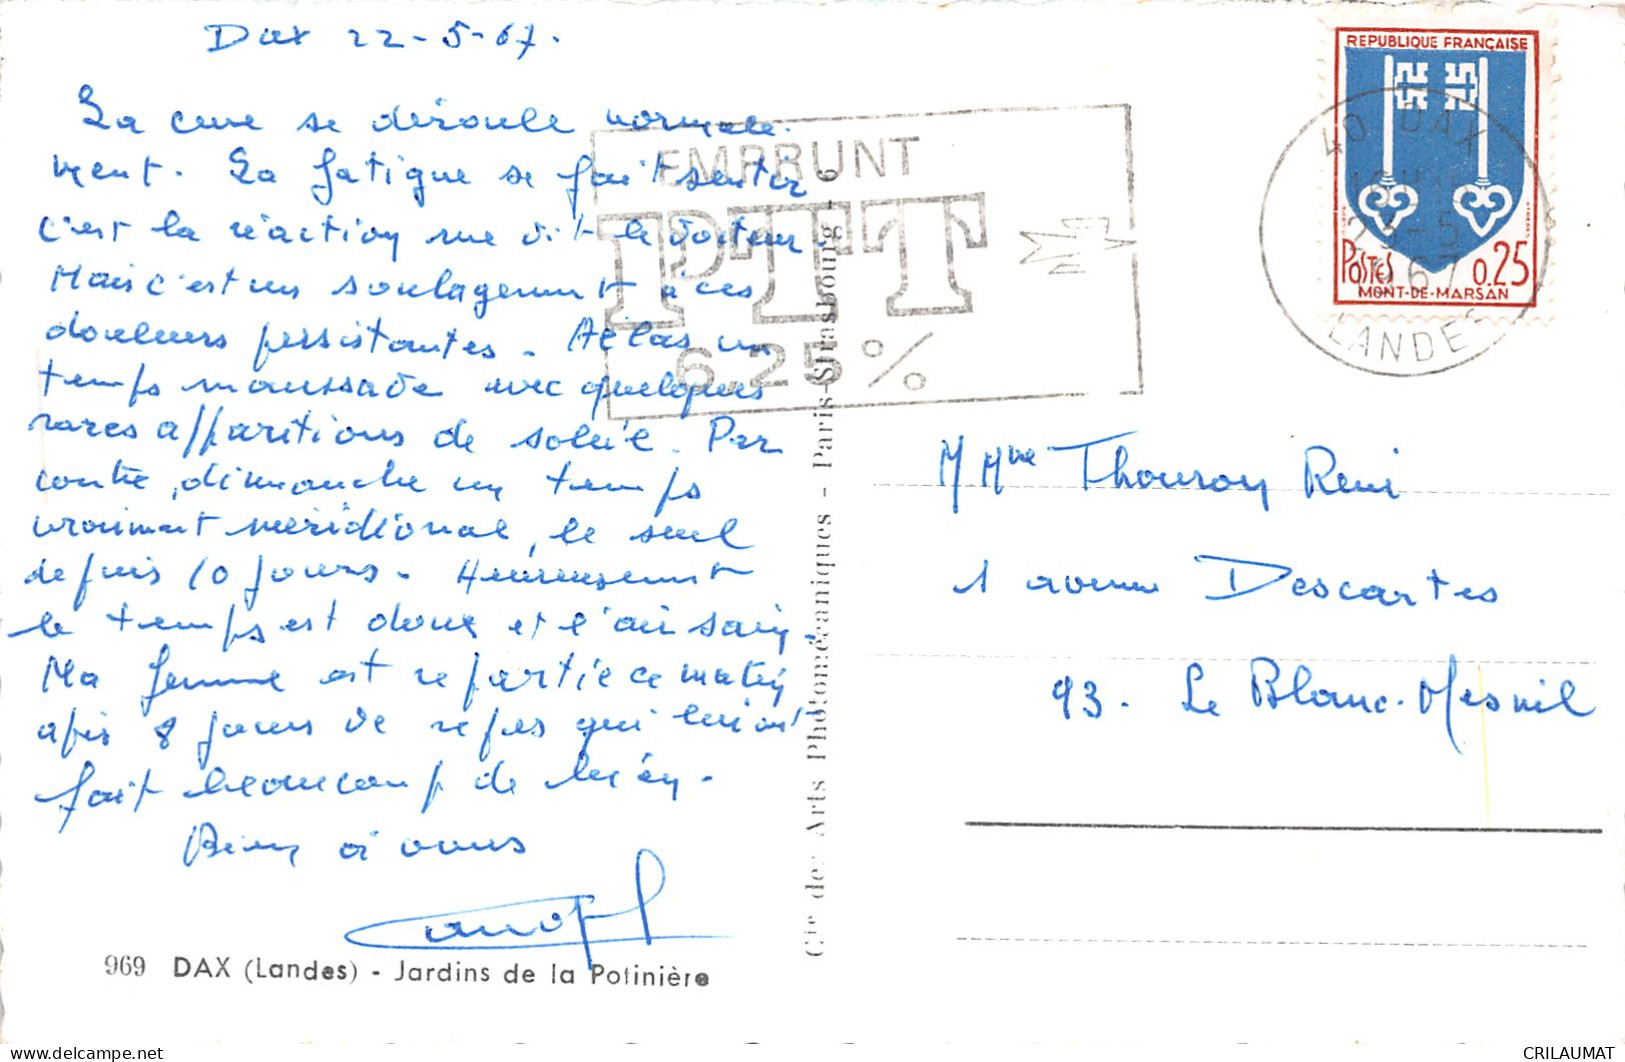 Dax 22-5-67.
La cure se déroule normale-
ment. La fatigue se fait sentir
c'est la réaction me dit le docteur
Mais c'est un soulagement à ces
douleurs persistantes. Hélas un
temps maussade avec quelques
rares apparitions de soleil. Par
contre, dimanche un temps
vraiment méridional, le seul
depuis 10 jours. Heureusement
le temps est doux et l'air sain.
Ma femme est repartie ce matin
après 8 jours de repos qui lui ont
fait beaucoup de bien.
Bien à vous
969 DAX (Landes) - Jardins de la Potinière
Cie des Arts Photomécaniques - Paris-Strasbourg - 6
EMPRUNT
PTT
6.25 %
REPUBLIQUE FRANÇAISE
POSTES 0,25
MONT-DE-MARSAN
40 DAX
23-5
67
LANDES
M Mme Thouroy René
1 avenue Descartes
93. Le Blanc-Mesnil
CRILAUMAT